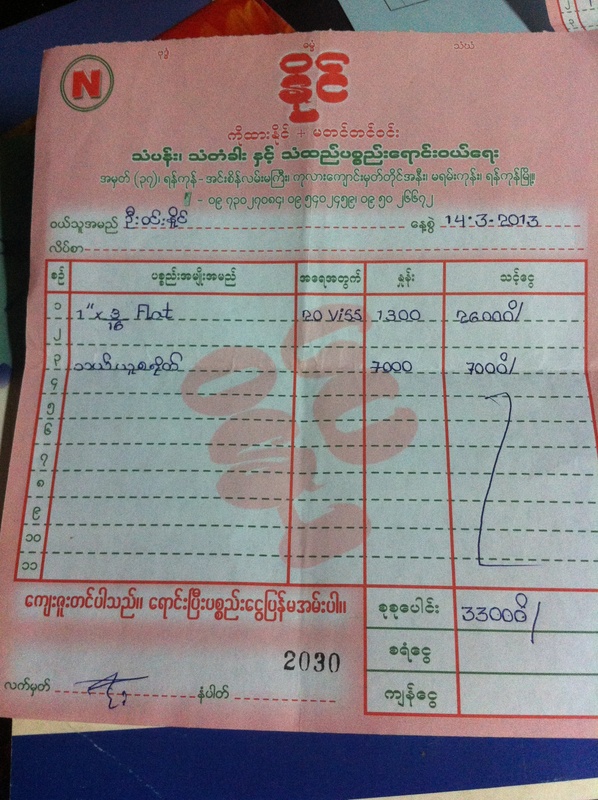 ဗုဒ္ဓံ ဓမ္မံ သံဃံ
N
နိုင်
ကိုထားနိုင် + မတင်တင်ဝင်း
သံပန်း၊ သံတံခါး နှင့် သံထည်ပစ္စည်းရောင်းဝယ်ရေး
အမှတ် (၃၇)၊ ရန်ကုန်-အင်းစိန်လမ်းမကြီး၊ ကုလားကျောင်းမှတ်တိုင်အနီး၊ မရမ်းကုန်း၊ ရန်ကုန်မြို့။
- ၀၉ ၇၃၀၂၇၀၈၄၊ ၀၉ ၅၄၀၂၄၅၉၊ ၀၉ ၅၀ ၂၆၆၇၂
ဝယ်သူအမည် ဦးဝင်းနိုင် နေ့စွဲ 14.3.2013
လိပ်စာ
စဉ် ပစ္စည်းအမျိုးအမည် အရေအတွက် နှုန်း သင့်ငွေ
၁ 1" x 3/16 Flat 20 Viss 1300 26000/
၂
၃ 7000 7000/
၄
၅
၆
၇
၈
၉
၁၀
၁၁
ကျေးဇူးတင်ပါသည်။ ရောင်းပြီးပစ္စည်းငွေပြန်မအမ်းပါ။ စုစုပေါင်း 33000/
စရံငွေ
2030
လက်မှတ် နံပါတ် ကျန်ငွေ